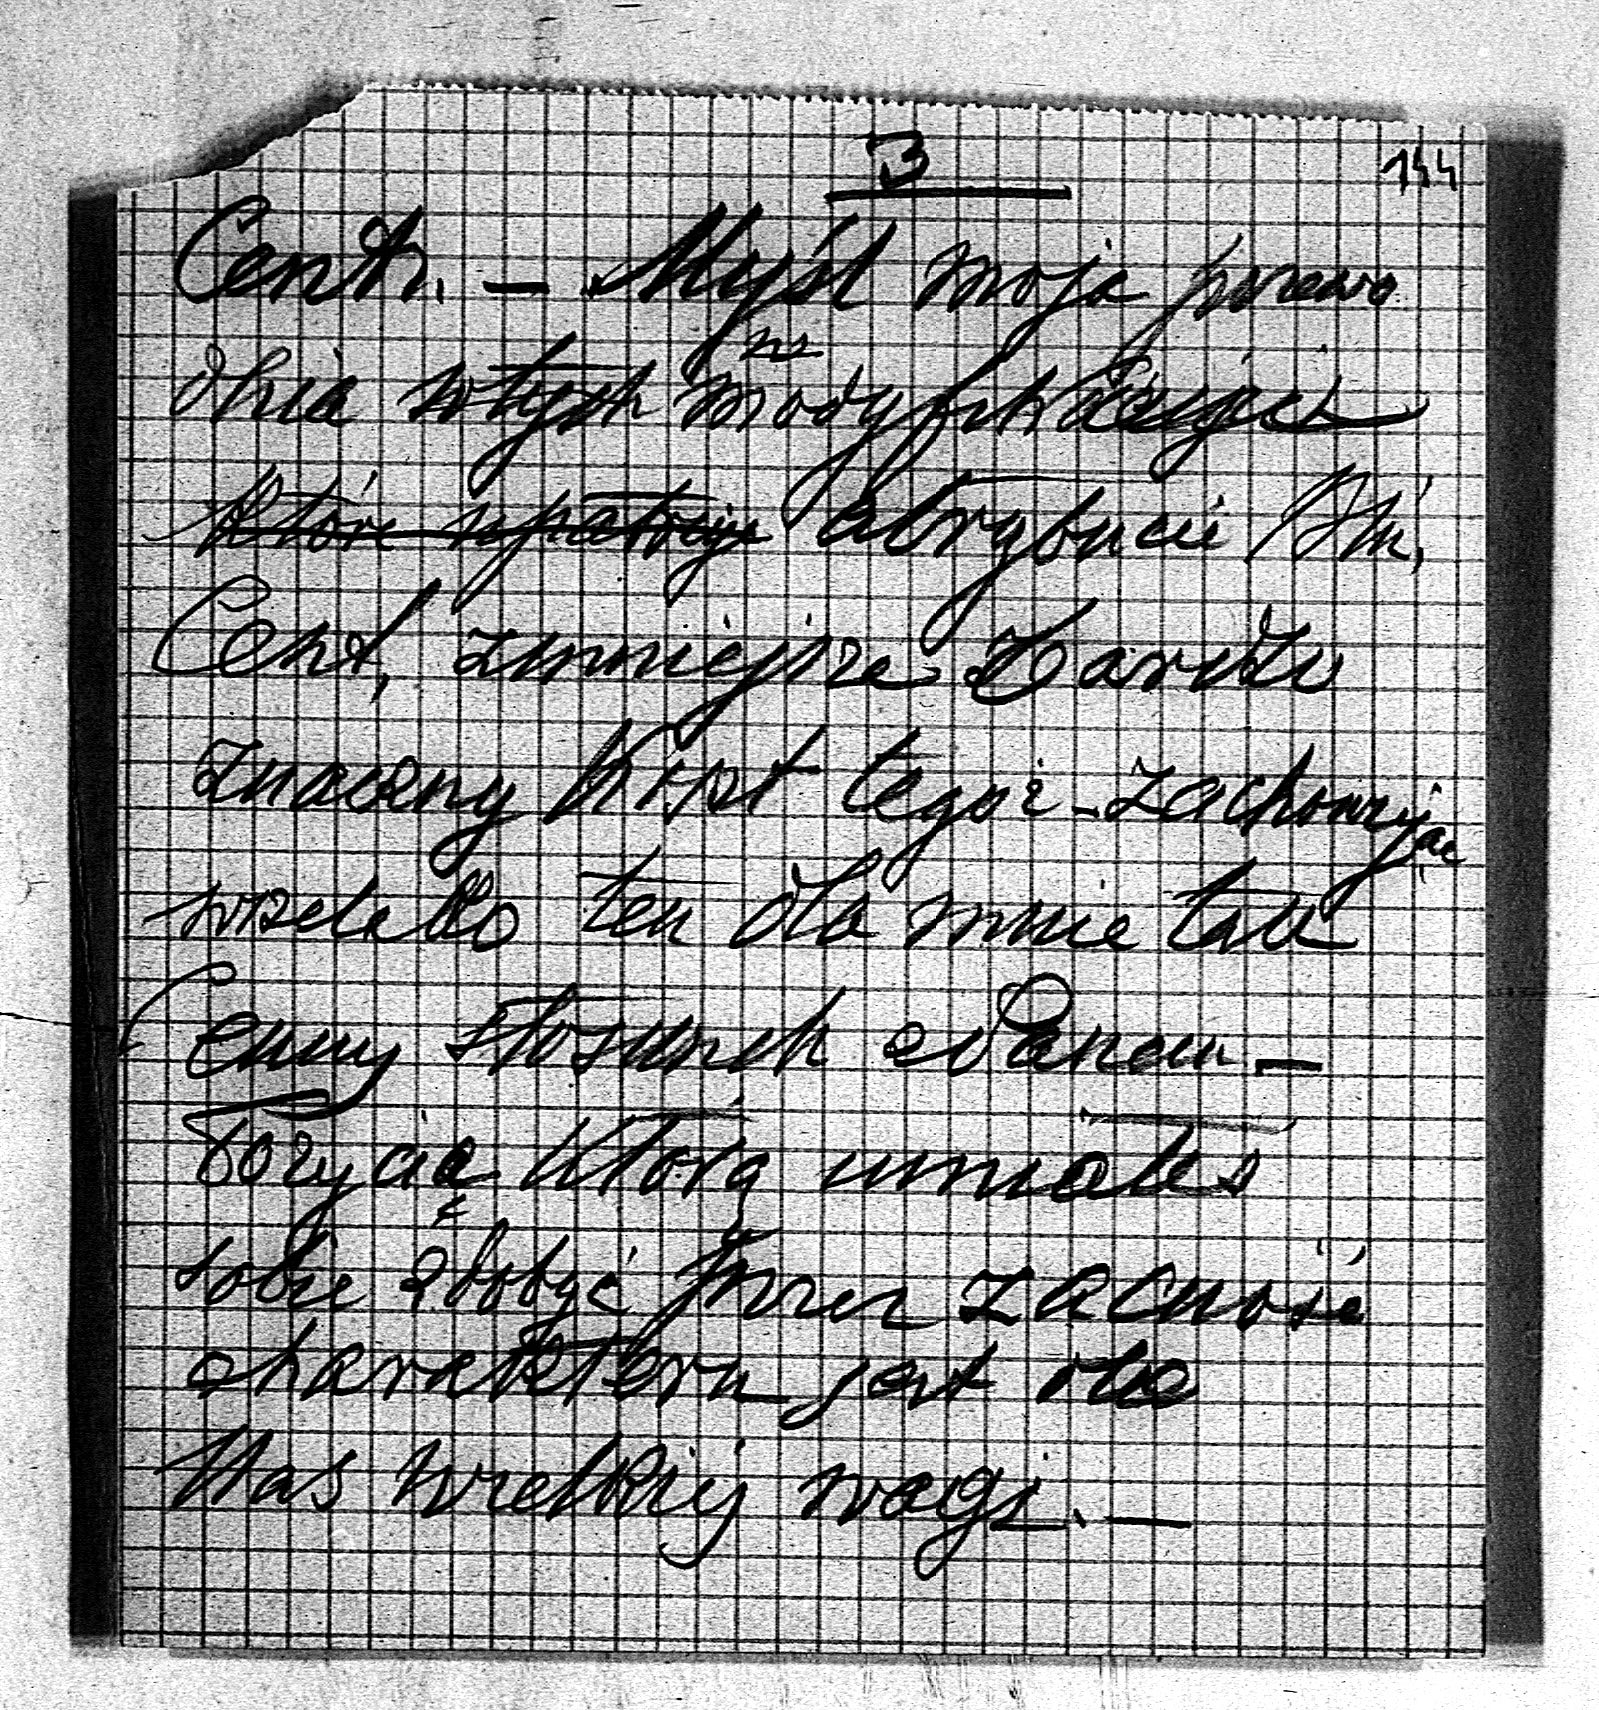 3
144
Centr. — Myśl moja przewo
dnia w tych modyfikacjach
które upatruję atrybucii Dm.
Cent, zmniejsza bardzo
znaczny koszt tegoż - zachowując
wszelako ten dla mnie tak
Cenny stosunek z Panem —
Pozycia którą umiałeś
sobie zdobyć przez zacność
charakteru jest dla
Nas wielkij wagi. —